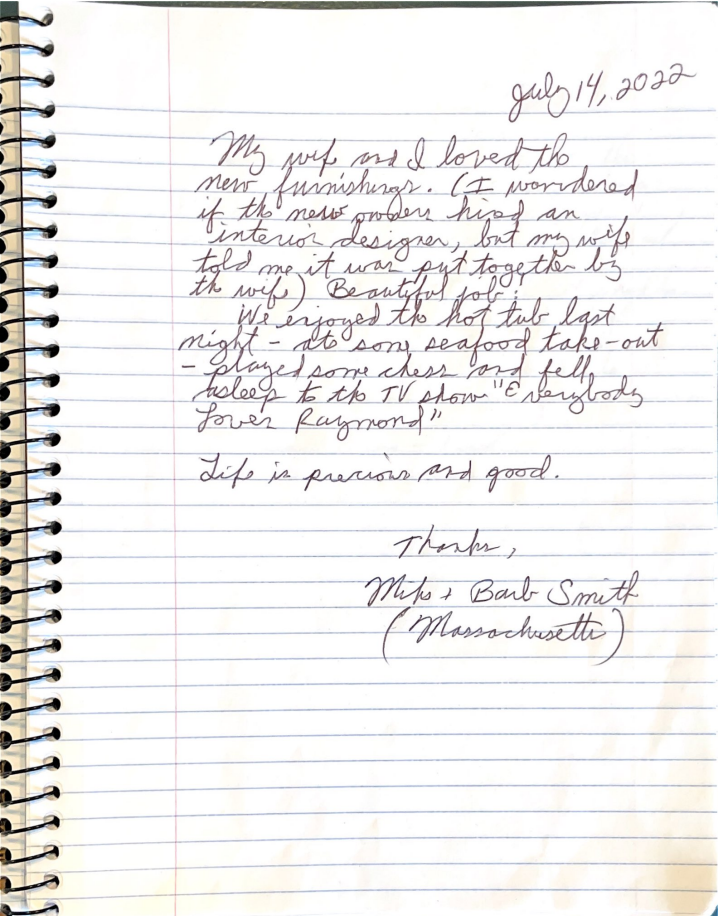 July 14, 2022
My wife and I loved the
new furnishings. (I wondered
if the new owners hired an
interior designer, but my wife
told me it was put together by
the wife) Beautiful job!
We enjoyed the hot tub last
night - ate some seafood take-out
- played some chess and fell
asleep to the TV show "Everybody
Loves Raymond"
Life is precious and good.
Thanks,
Mike + Barb Smith
(Massachusetts)